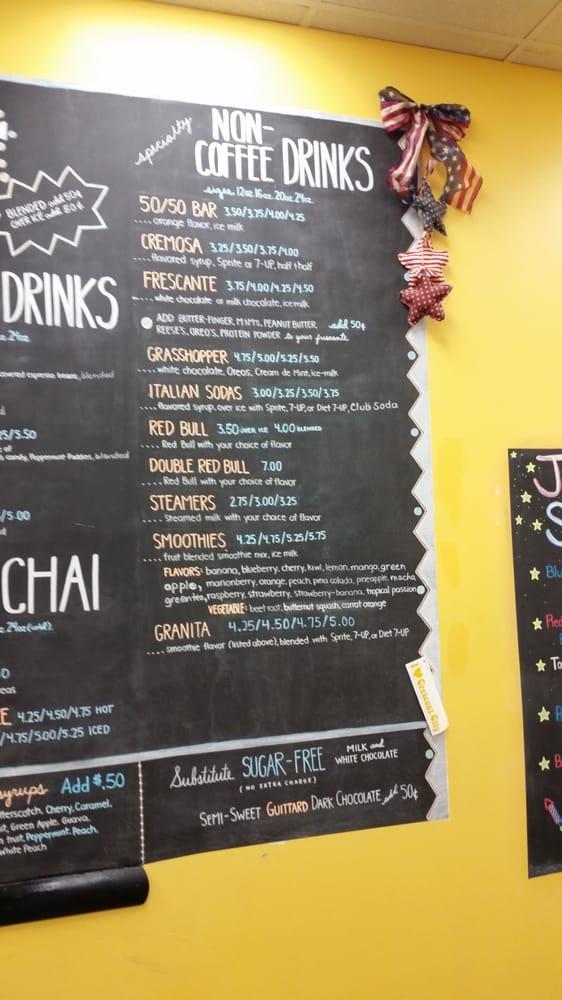 specialty NON-
COFFEE DRINKS
sizes 12oz. 16oz. 20oz. 24oz.
50/50 BAR 3.50/3.75/4.00/4.25
....orange flavor, ice milk
CREMOSA 3.25/3.50/3.75/4.00
....flavored syrup, Sprite or 7-UP, half & half
FRESCANTE 3.75/4.00/4.25/4.50
....white chocolate or milk chocolate, ice milk
ADD BUTTER-FINGER, M&M'S, PEANUT BUTTER, add 50¢
REESE'S, OREO'S, PROTEIN POWDER to your frescante
GRASSHOPPER 4.75/5.00/5.25/5.50
....white chocolate, Oreos, Cream de Mint, ice-milk
ITALIAN SODAS 3.00/3.25/3.50/3.75
....flavored syrup, over ice with Sprite, 7-UP, or Diet 7-UP, Club Soda
RED BULL 3.50 OVER ICE 4.00 BLENDED
....Red Bull with your choice of flavor
DOUBLE RED BULL 7.00
....Red Bull with your choice of flavor
STEAMERS 2.75/3.00/3.25
....Steamed milk with your choice of flavor
SMOOTHIES 4.25/4.75/5.25/5.75
....fruit blended smoothie mix, ice milk
FLAVORS: banana, blueberry, cherry, kiwi, lemon, mango, green
apple, marionberry, orange, peach, pina colada, pineapple, macha
greentea, raspberry, strawberry, strawberry-banana, tropical passion
VEGETABLE: beet root, butternut squash, carrot orange
GRANITA 4.25/4.50/4.75/5.00
....smoothie flavor (listed above), blended with Sprite, 7-UP, or Diet 7-UP
Substitute SUGAR-FREE MILK and
WHITE CHOCOLATE
(NO EXTRA CHARGE)
SEMI-SWEET GUITTARD DARK CHOCOLATE add 50¢
BLENDED add 50¢
OVER ICE add 50¢
DRINKS
24oz.
covered espresso beans, blended
5/5.50
candy, Peppermint Patties, blended
/5.00
CHAI
24oz (cold).
eas
E 4.25/4.50/4.75 HOT
/4.75/5.00/5.25 ICED
syrups Add $.50
tterscotch, Cherry, Caramel,
t, Green Apple, Guava,
n fruit, Peppermint, Peach,
White Peach
I
J
S
Blu
Red
To
B